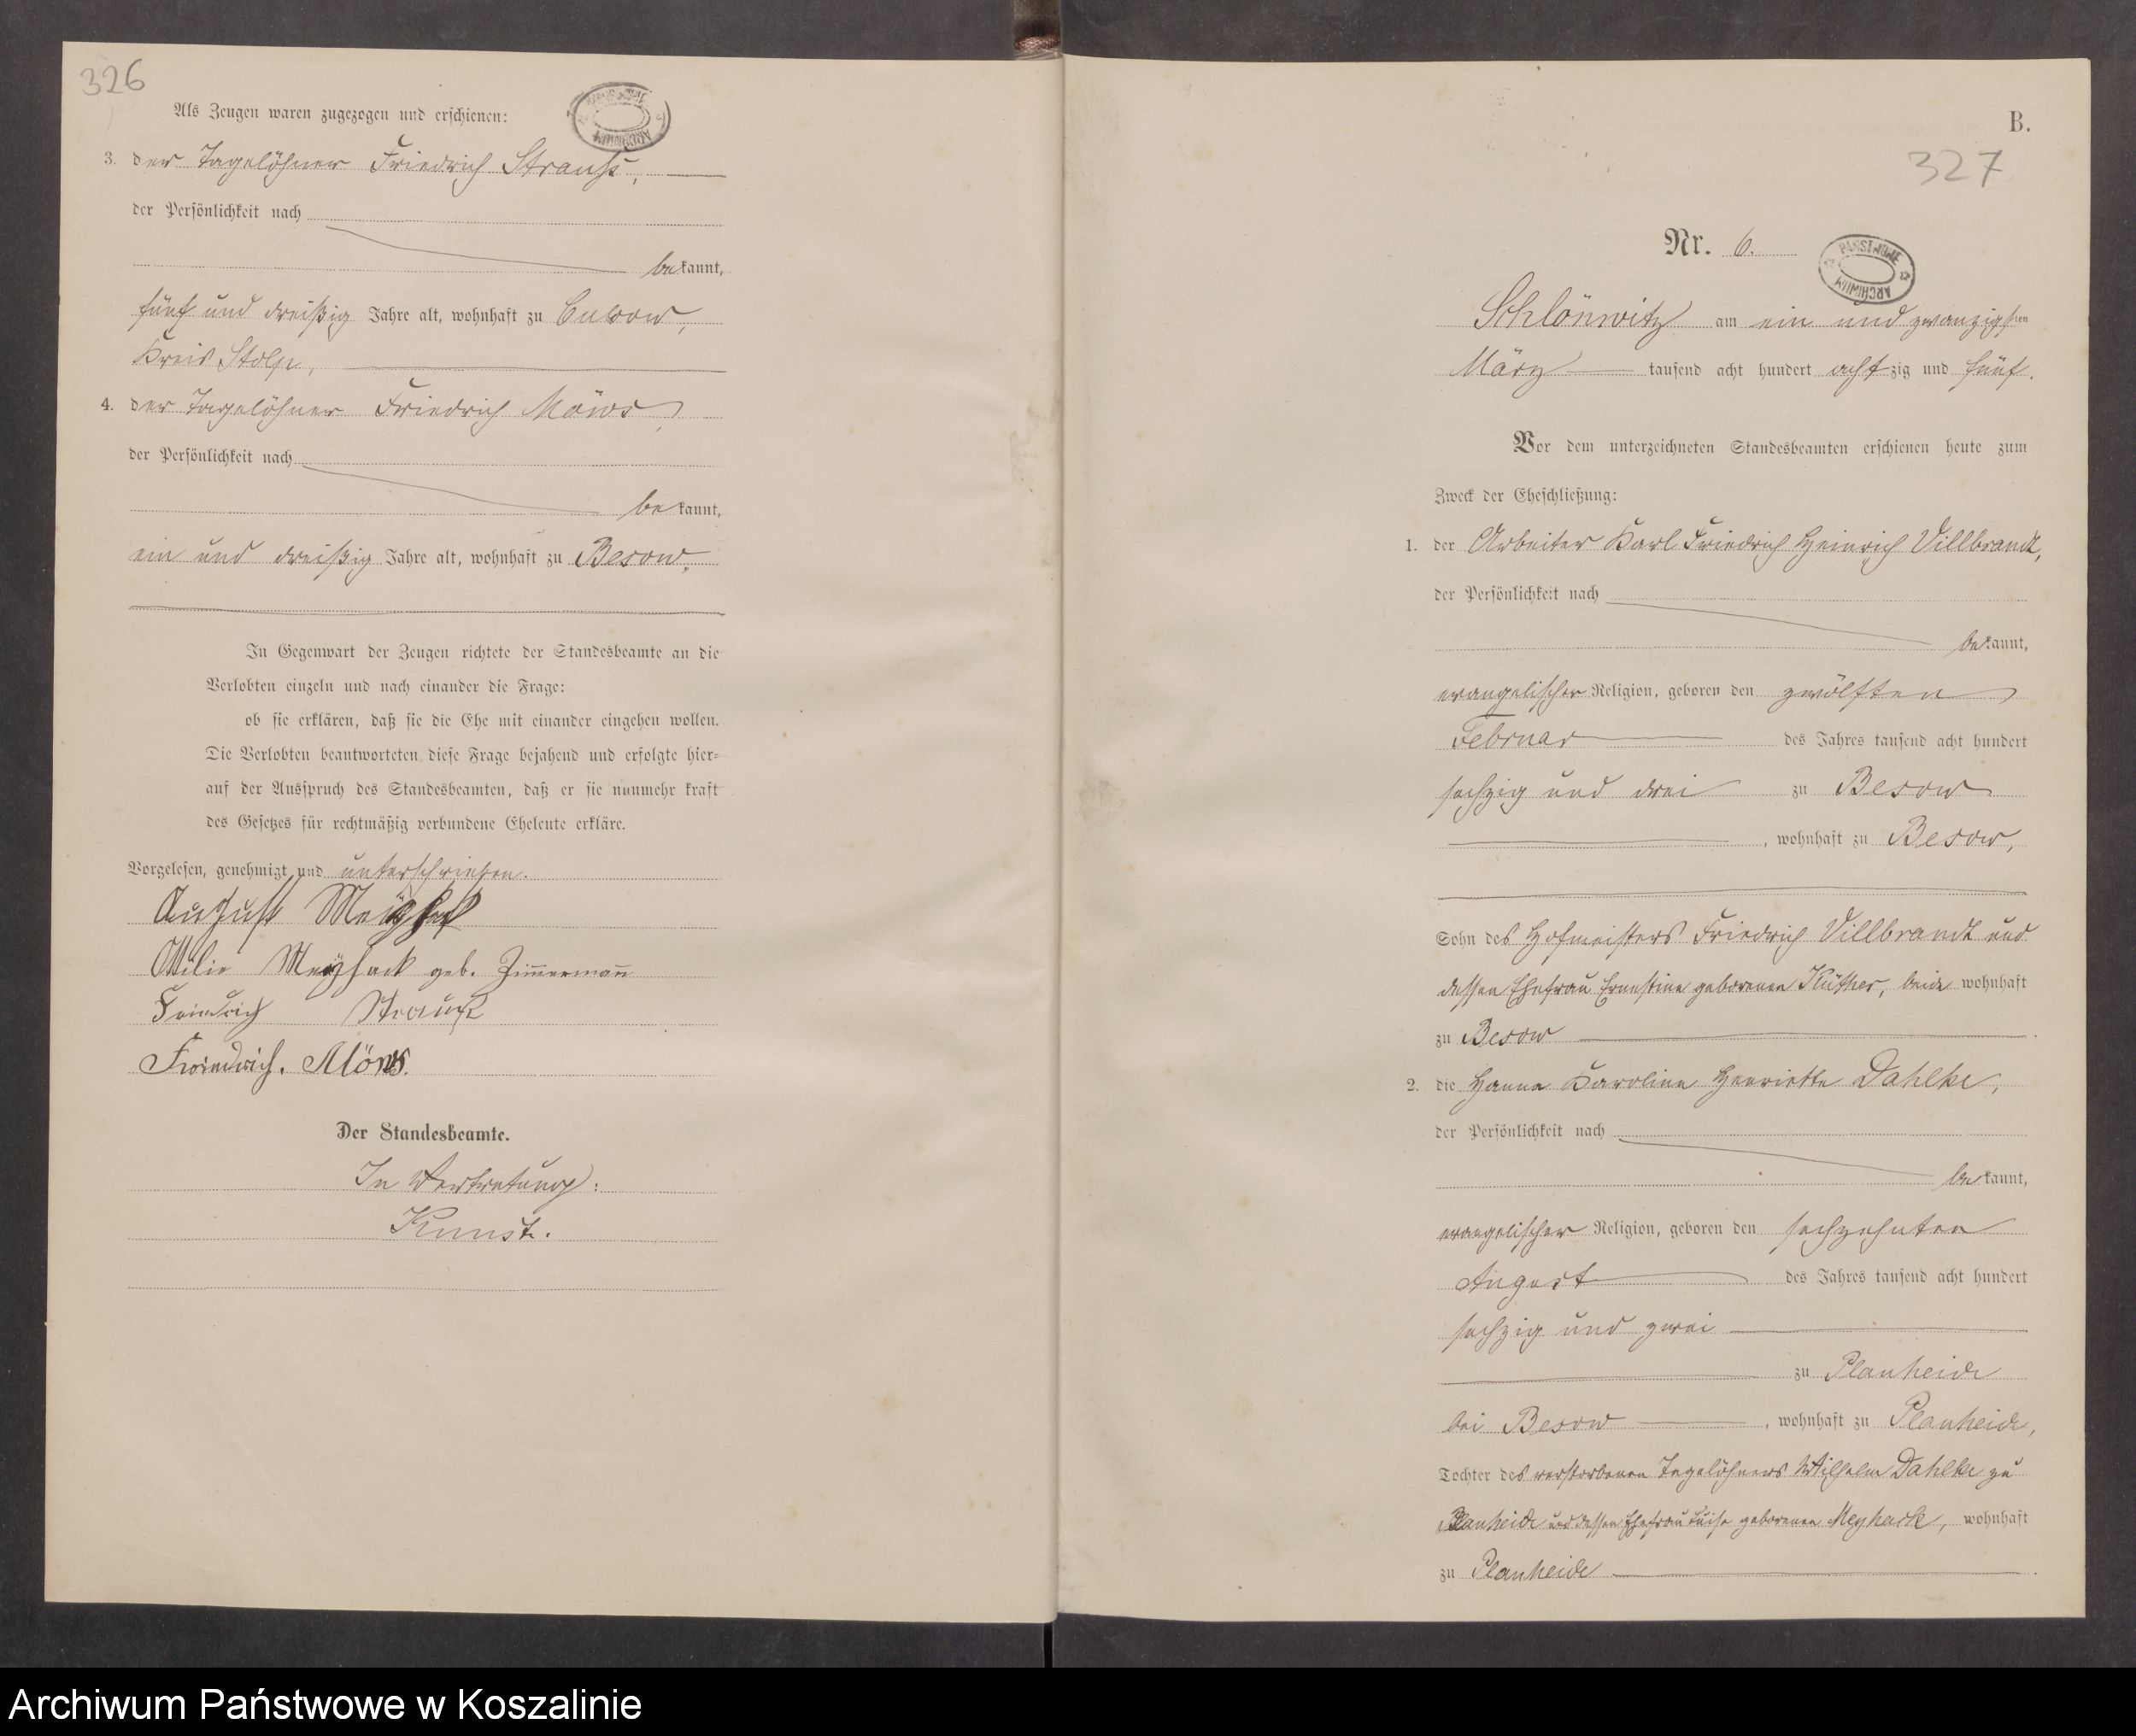 326
Als Zeugen waren zugezogen und erschienen:
3. der Tagelöhner Friedrich Strauß,
der Persönlichkeit nach
bekannt,
fünf und dreißig Jahre alt, wohnhaft zu
Kreis Stolp,
4. der Tagelöhner Friedrich Möws,
der Persönlichkeit nach
bekannt,
ein und dreißig Jahre alt, wohnhaft zu Besow,
In Gegenwart der Zeugen richtete der Standesbeamte an die
Verlobten einzeln und nach einander die Frage:
ob sie erklären, daß sie die Ehe mit einander eingehen wollen.
Die Verlobten beantworteten diese Frage bejahend und erfolgte hier-
auf der Ausspruch des Standesbeamten, daß er sie nunmehr kraft
des Gesetzes für rechtmäßig verbundene Eheleute erkläre.
Vorgelesen, genehmigt und unterschrieben.
August
Meyhack geb. Zimmermann
Friedrich Strauß
Friedrich. Möws.
Der Standesbeamte.
In Vertretung:
Kunst.
B.
327
Nr. 6.
PAŃSTWOWE ARCHIWUM
Schlönwitz am ein und zwanzigsten
März tausend acht hundert achtzig und fünf.
Vor dem unterzeichneten Standesbeamten erschienen heute zum
Zweck der Eheschließung:
1. der Arbeiter Karl Friedrich Heinrich Villbrandt,
der Persönlichkeit nach
bekannt,
evangelischer Religion, geboren den zwölften
Februar des Jahres tausend acht hundert
sechzig und drei zu Besow
, wohnhaft zu Besow,
Sohn des Hofmeisters Friedrich Villbrandt und
dessen Ehefrau Ernestine geborenen Küther, beide wohnhaft
zu Besow .
2. die Hanna Karoline Henriette Dahlke,
der Persönlichkeit nach
bekannt,
evangelischer Religion, geboren den sechzehnten
August des Jahres tausend acht hundert
sechzig und zwei
zu Planheide
bei Besow , wohnhaft zu Planheide,
Tochter des verstorbenen Tagelöhners Wilhelm Dahlke zu
Planheide und dessen Ehefrau Luise geborenen Meyhack, wohnhaft
zu Planheide .
Archiwum Państwowe w Koszalinie